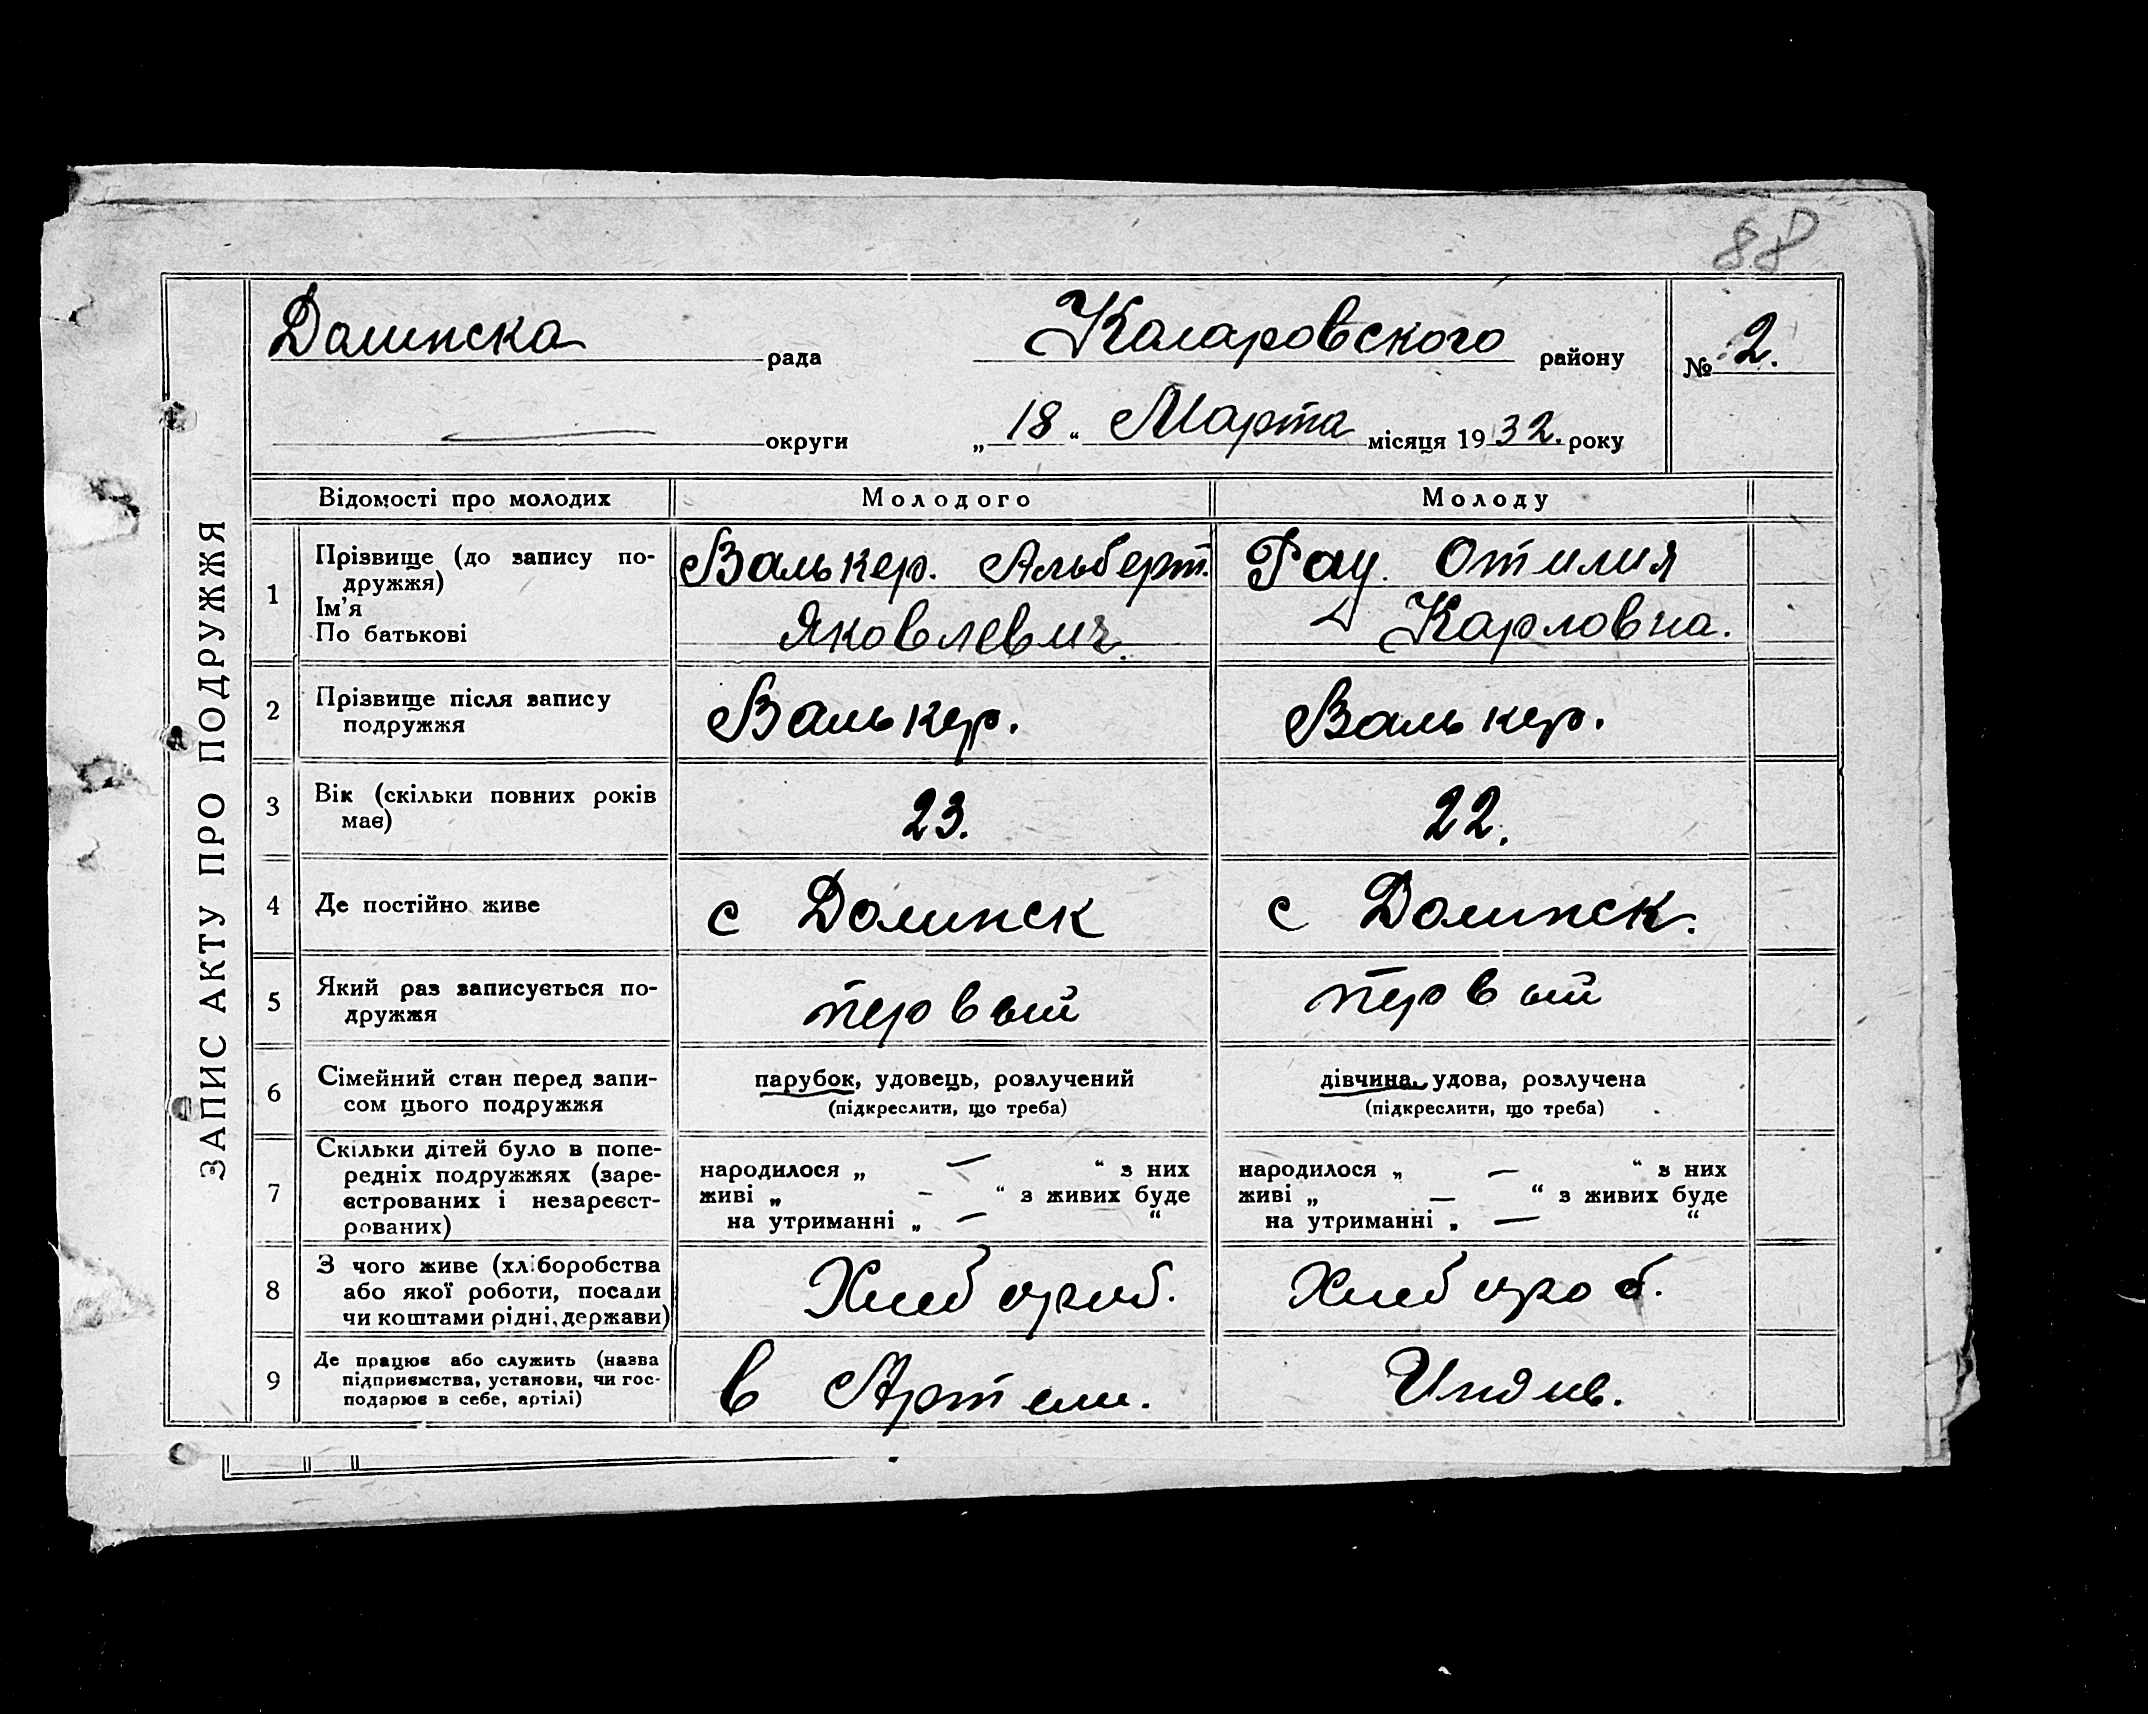 88
Долинска рада Коларовского району № 2.
— округи „ 18 “ Марта місяця 1932. року
ЗАПИС АКТУ ПРО ПОДРУЖЖЯ
Відомості про молодих Молодого Молоду
1 Прізвище (до запису по-
дружжя)
Ім’я
По батькові
Валькер. Альберт.
Яковлевич.
Рау. Отилия
Карловна.
2 Прізвище після запису
подружжя
Валькер. Валькер.
3 Вік (скільки повних років
має)
23. 22.
4 Де постійно живе с Долинск с Долинск.
5 Який раз записується по-
дружжя
первый первый
6 Сімейний стан перед запи-
сом цього подружжя
парубок, удовець, розлучений
(підкреслити, що треба)
дівчина, удова, розлучена
(підкреслити, що треба)
7 Скільки дітей було в попе-
редніх подружжях (заре-
єстрованих і незареєст-
рованих)
народилося „ — “ з них
живі „ — “ з живих буде
на утриманні „ — “
народилося „ — “ з них
живі „ — “ з живих буде
на утриманні „ — “
8 З чого живе (хліборобства
або якої роботи, посади
чи коштами рідні, держави)
Хлебороб. Хлебороб.
9 Де працює або служить (назва
підприємства, установи, чи гос-
подарює в себе, артілі)
в Артели. Индив.